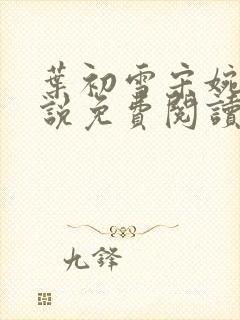 葉初雪宋婉
說免費閱讀
九鋒